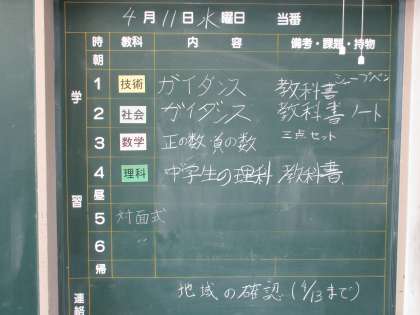 4月11日水曜日 当番
時 教科 内容 備考・課題・持物
朝
学習
1 技術 ガイダンス 教科書 シャープペン
2 社会 ガイダンス 教科書 ノート
3 数学 正の数負の数 三点セット
4 理科 中学生の理科 教科書
昼
5 対面式
6 〃
帰
連絡 地域の確認 (4/13まで)